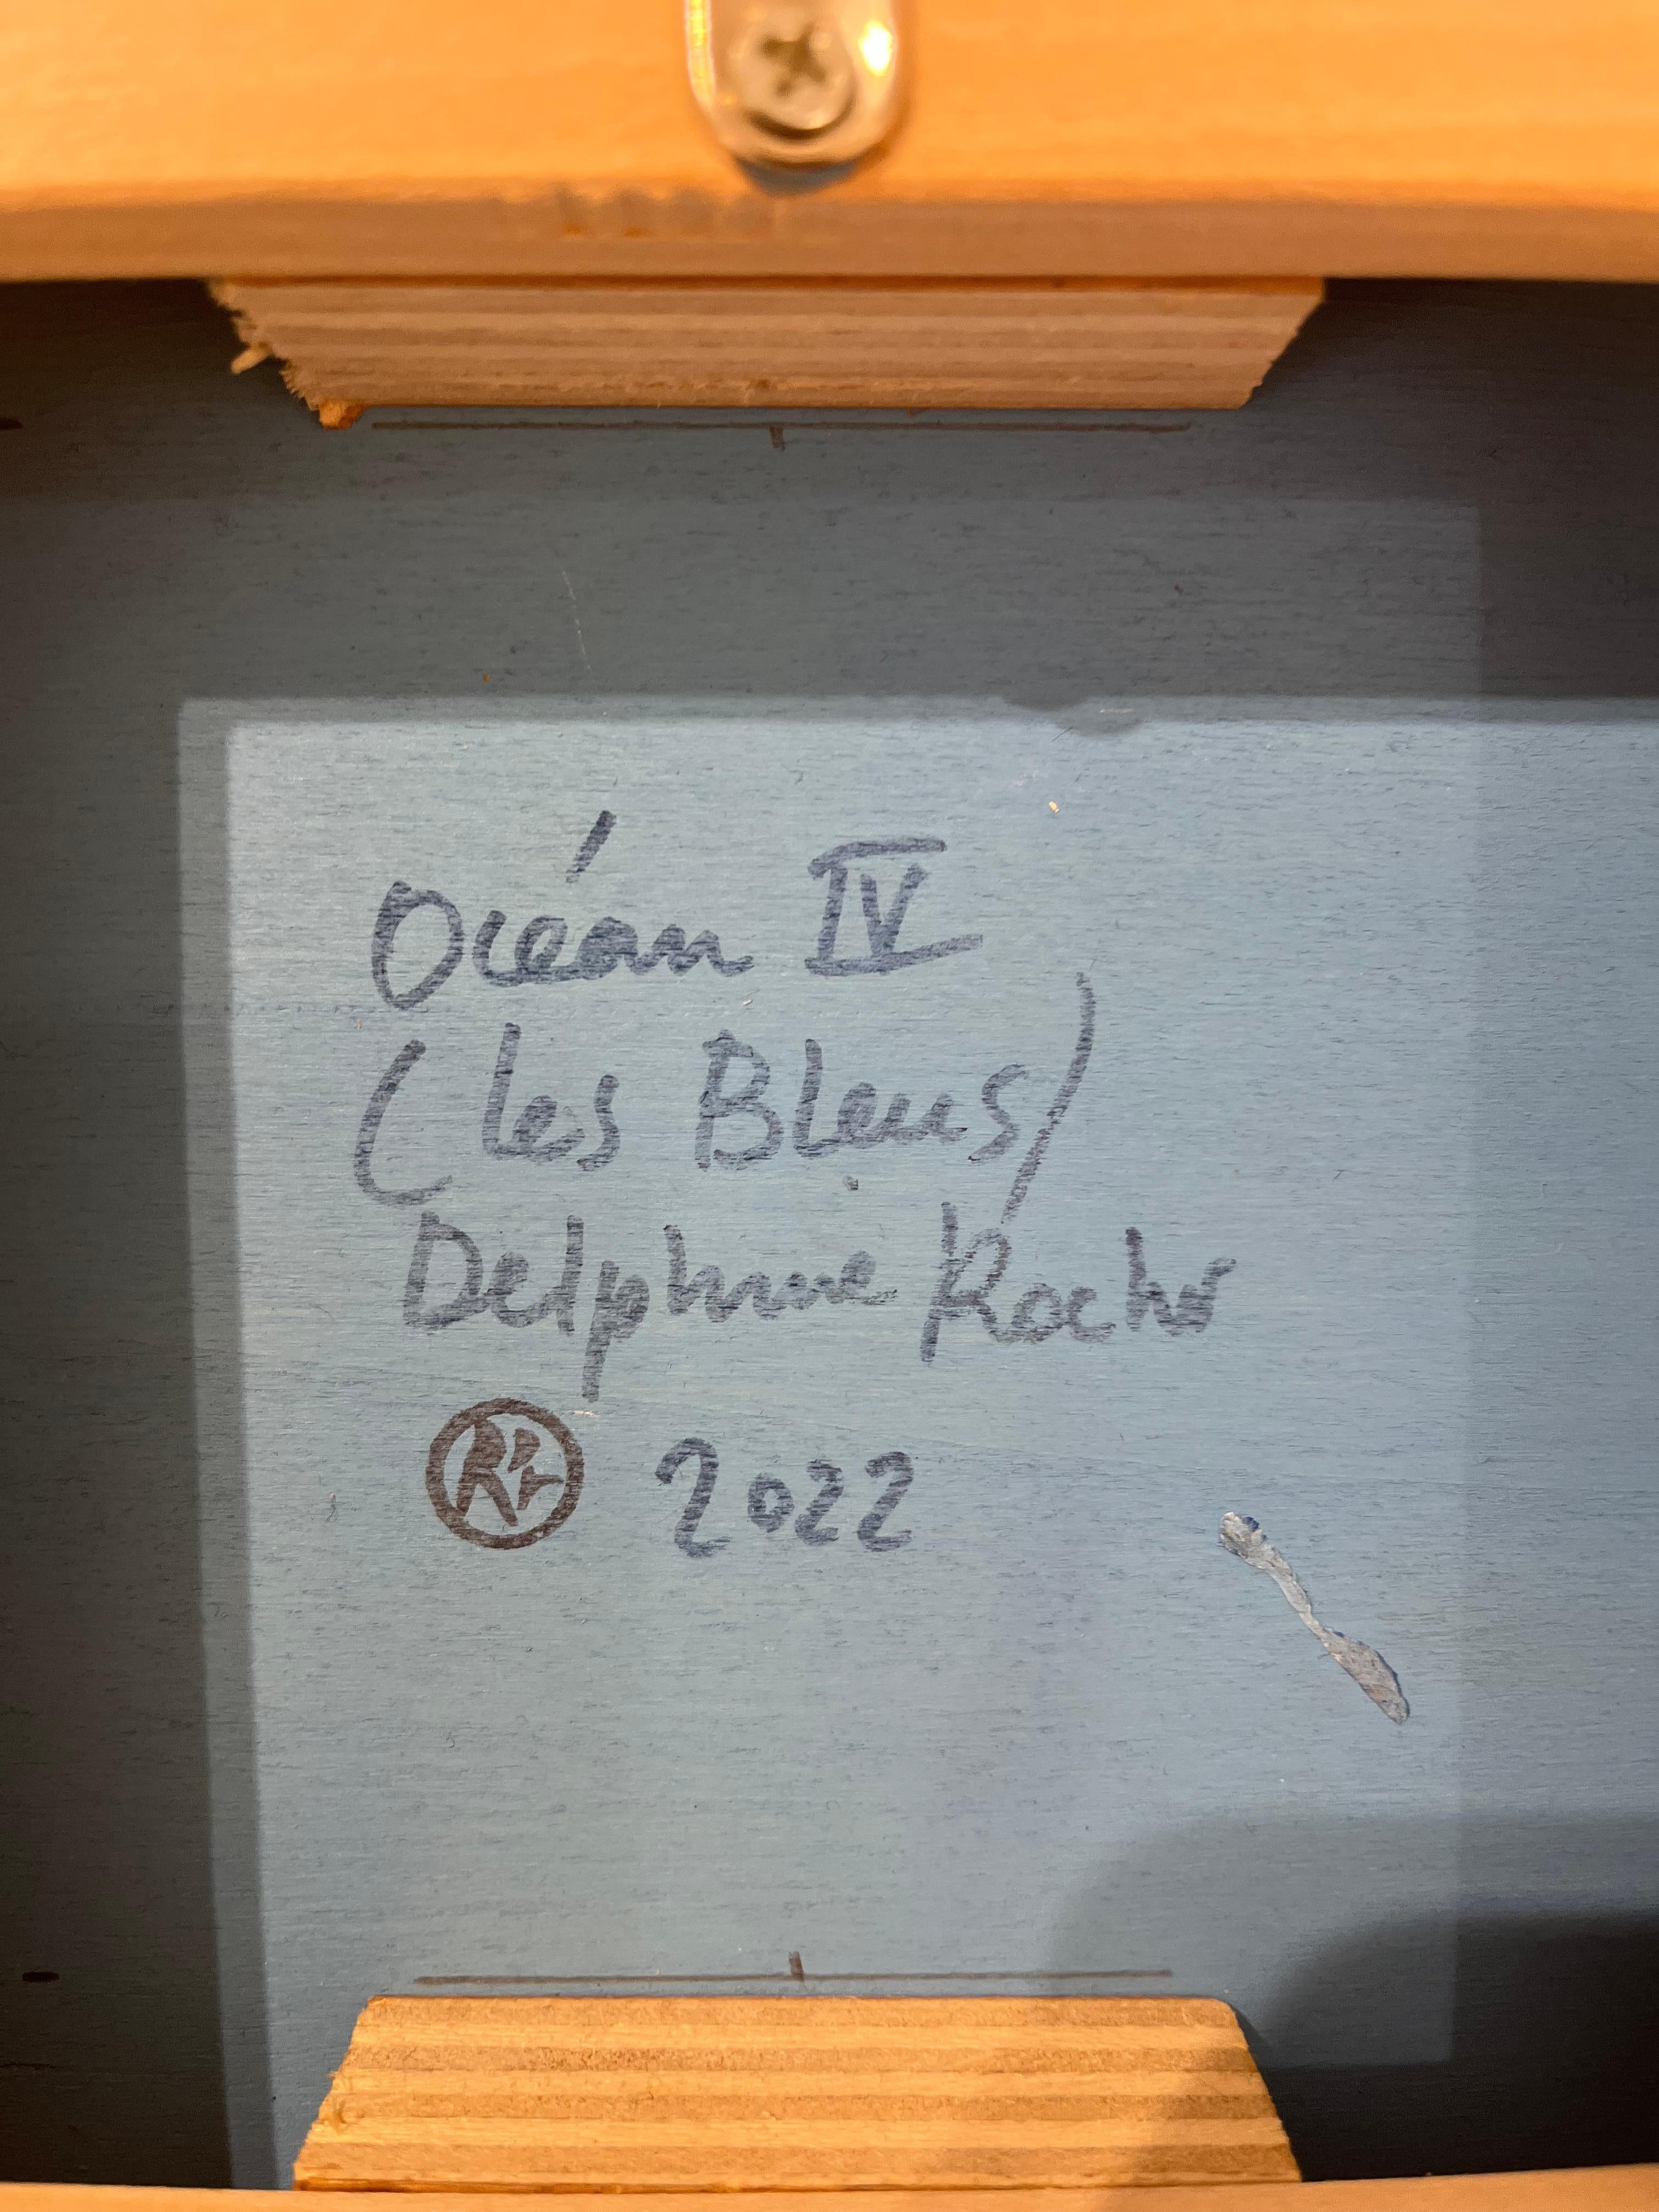 Océan IV
(les Bleus)
Delphine Rocher
2022